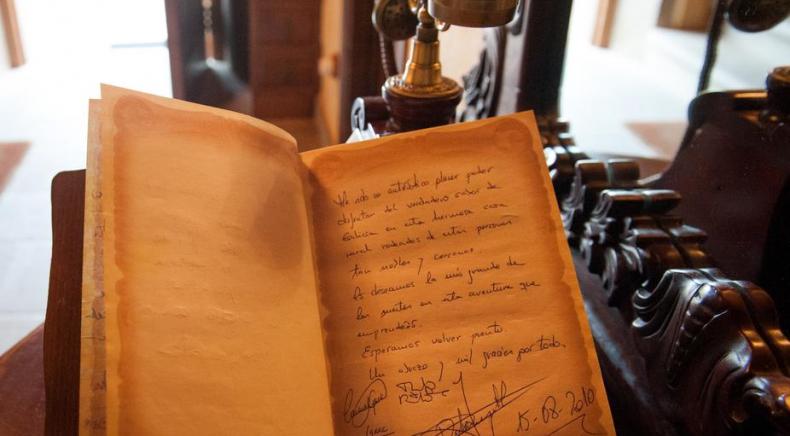 Ha sido un auténtico placer poder
disfrutar del verdadero sabor de
Galicia en esta hermosa casa
rural rodeados de estas personas
tan nobles y cercanas
Os deseamos la más grande de
las suertes en esta aventura que
emprendéis.
Esperamos volver pronto.
Un abrazo y mil gracias por todo.
15-08-2010